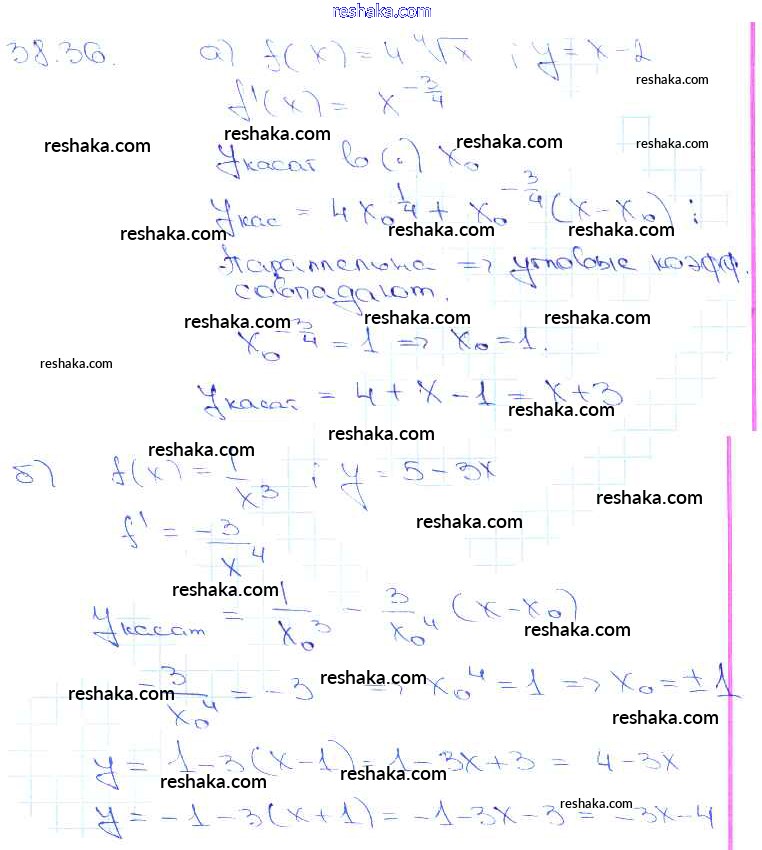 reshaka.com
38.36. а) f(x) = 4 ⁴√x ; y = x – 2
reshaka.com
f'(x) = x^(-3/4)
reshaka.com reshaka.com reshaka.com
yкасат в (·) x₀
yкас = 4x₀^(1/4) + x₀^(-3/4) (x – x₀) ;
reshaka.com reshaka.com reshaka.com
Параллельна => угловые коэфф.
reshaka.com
совпадают.
reshaka.com reshaka.com reshaka.com
x₀^(-3/4) = 1 => x₀ = 1.
reshaka.com
yкасат = 4 + x – 1 = x + 3
reshaka.com
reshaka.com
reshaka.com
б) f(x) = 1/x³ ; y = 5 – 3x
reshaka.com
reshaka.com
reshaka.com
f' = -3/x⁴
reshaka.com
yкасат = 1/x₀³ – 3/x₀⁴ (x – x₀)
reshaka.com
-3/x₀⁴ = -3 => x₀⁴ = 1 => x₀ = ±1
reshaka.com reshaka.com
reshaka.com
y = 1 – 3(x – 1) = 1 – 3x + 3 = 4 – 3x
reshaka.com reshaka.com
y = -1 – 3(x + 1) = -1 – 3x – 3 = -3x – 4
reshaka.com
reshaka.com